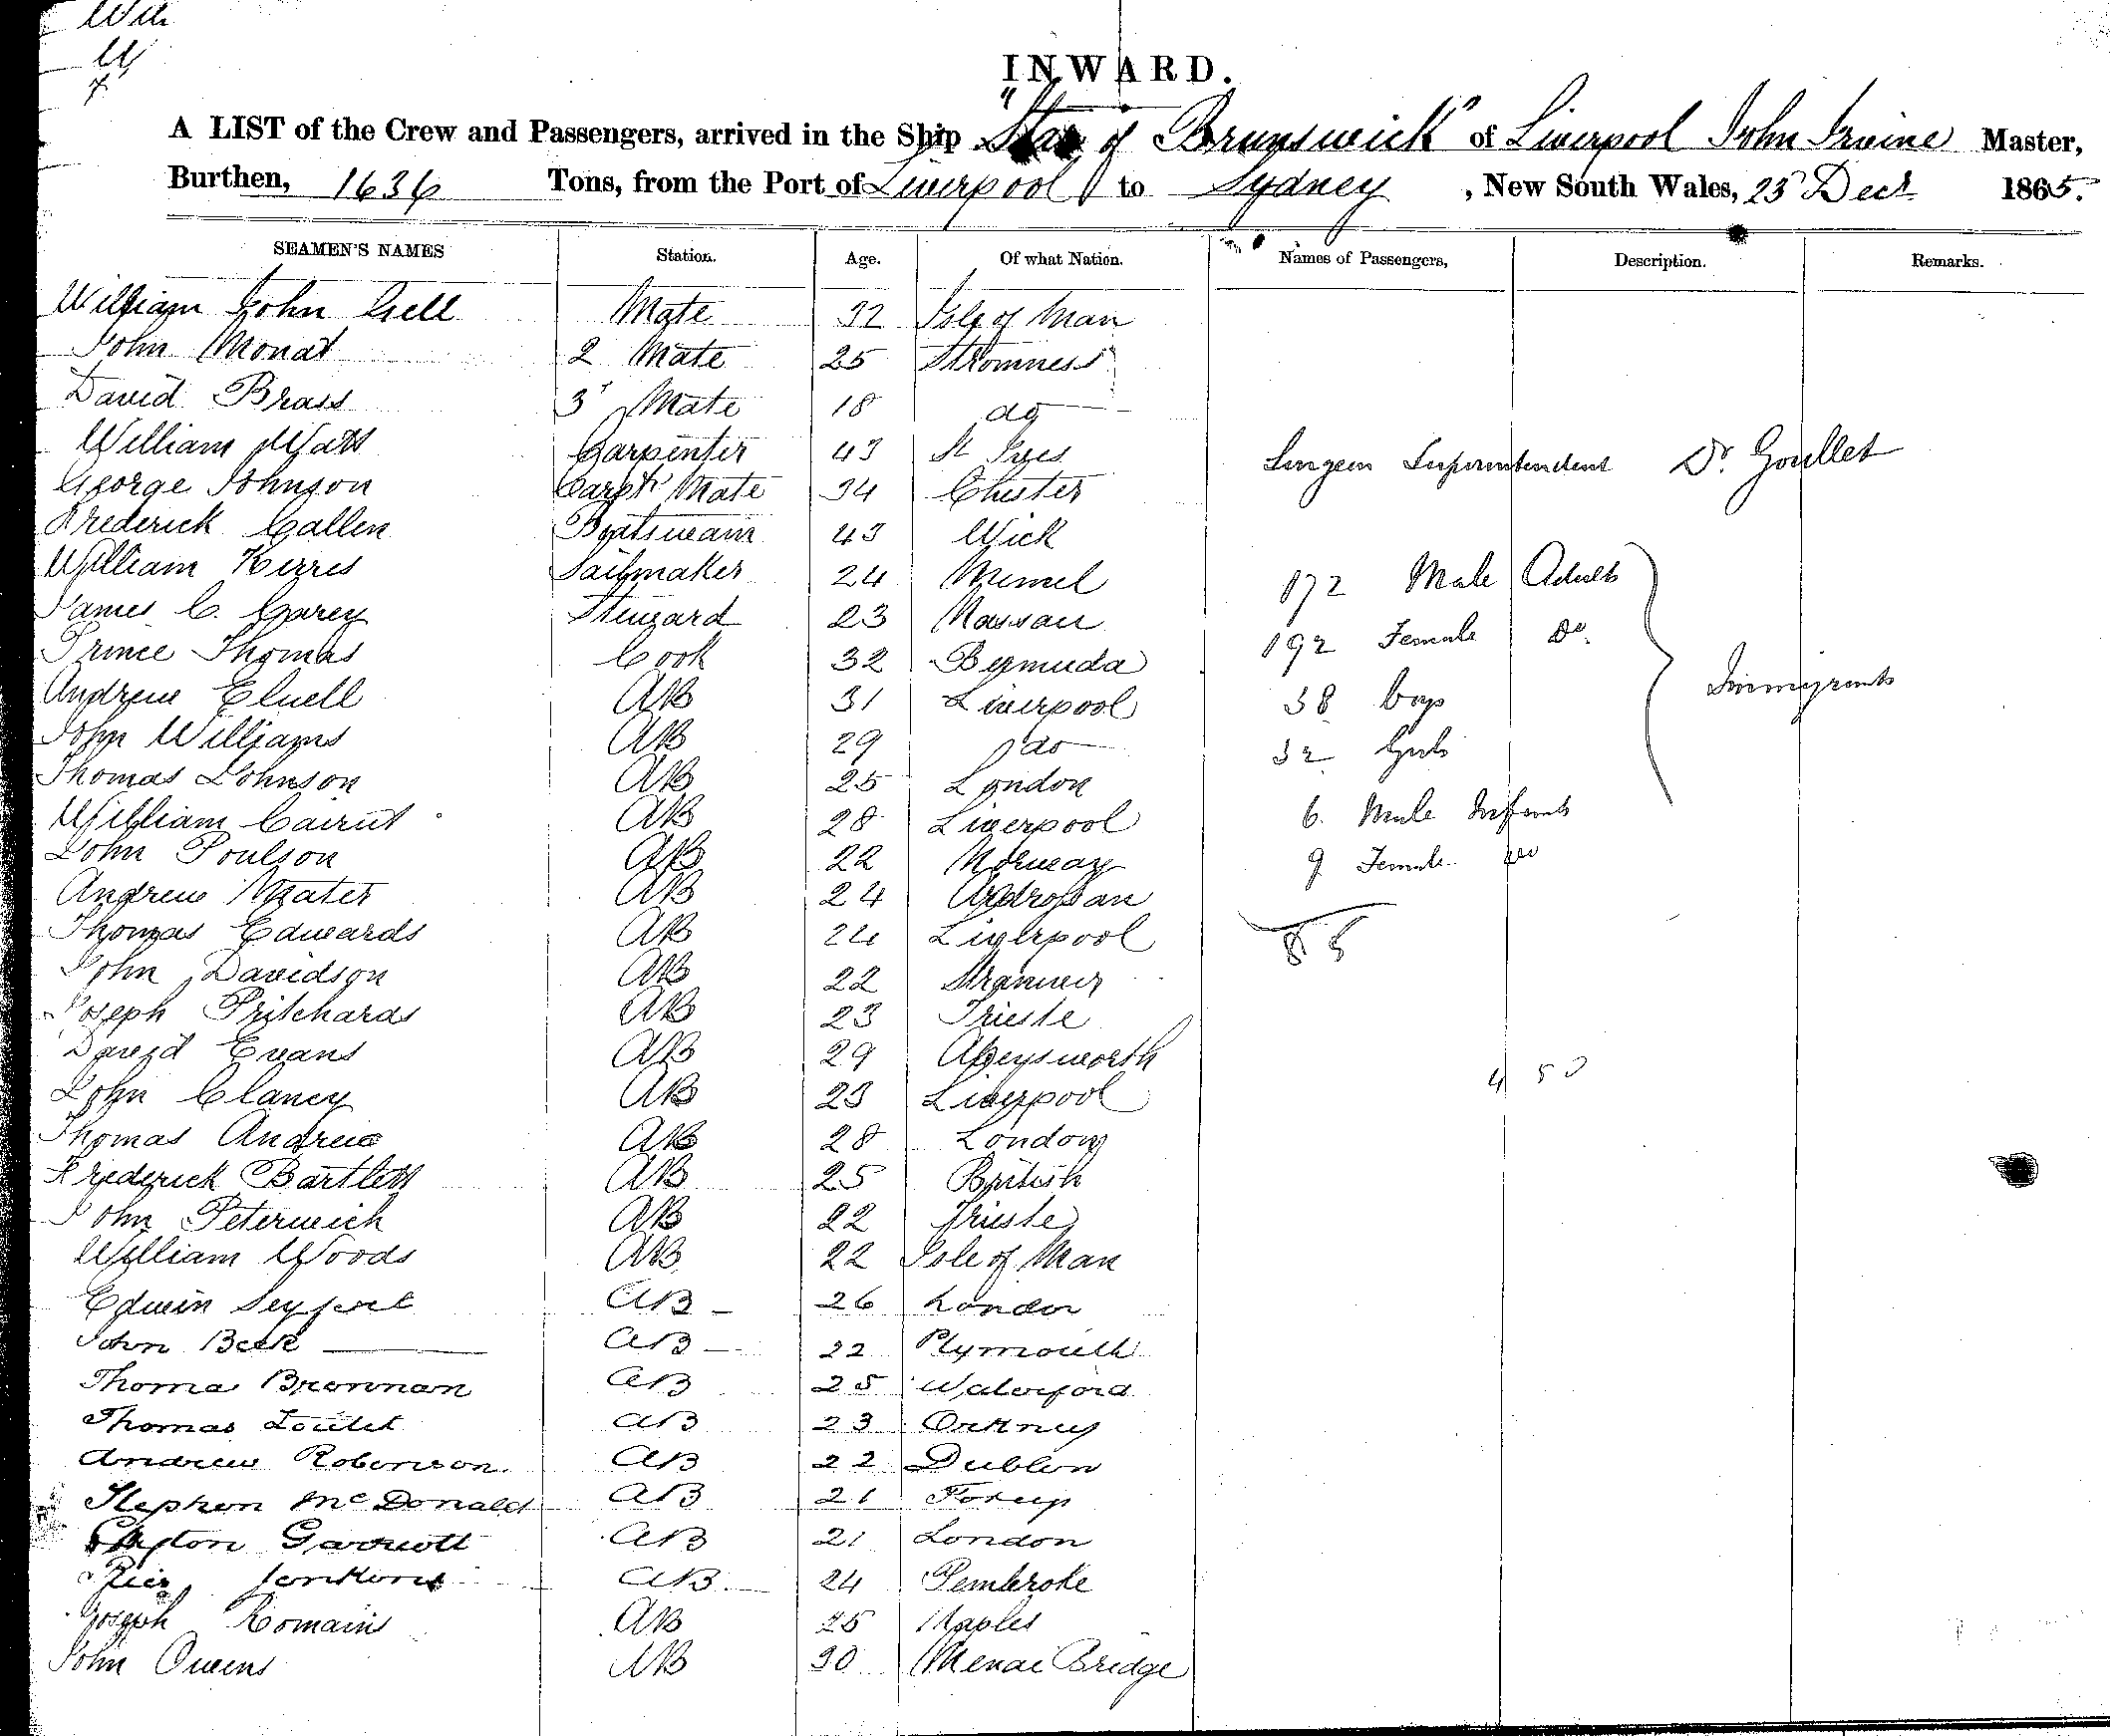 INWARD.
A LIST of the Crew and Passengers, arrived in the Ship "Star of Brunswick" of Liverpool John Irvine Master,
Burthen, 1636 Tons, from the Port of Liverpool to Sydney, New South Wales, 25 Decr 1865.
SEAMEN'S NAMES Station. Age. Of what Nation. Names of Passengers, Description. Remarks.
William John Gell Mate 32 Isle of Man
John Monat 2 Mate 25 Stromness
David Brass 3 Mate 18 do
William Watt Carpenter 43 St Ives
Surgeon Superintendent Dr. Goullet
George Johnson Carptr Mate 34 Chester
Frederick Callen Boatswain 43 Wick
William Kerris Sailmaker 24 Memel
172 Male Adults
James C. Carey Steward 23 Nassau
192 Female Do.
Prince Thomas Cook 32 Bermuda
Immigrants
Andrew Elwell AB 31 Liverpool
38 boys
John Williams AB 29 do
32 Girls
Thomas Johnson AB 25 London
William Cairut AB 28 Liverpool
6. Male Infants
John Poulson AB 22 Norway
9 Female do
Andrew Mater AB 24 Ardrossan
Thomas Edwards AB 24 Liverpool
85
John Davidson AB 22 Stranraer
Joseph Pritchards AB 23 Trieste
David Evans AB 29 Abeysworth
450
John Clancy AB 23 Liverpool
Thomas Andrew AB 28 London
Frederick Bartlett AB 25 British
John Peterwich AB 22 Trieste
William Woods AB 22 Isle of Man
Edwin AB 26 London
John Beek AB 22 Plymouth
Thoma Brennan AB 25 Waterford
Thomas Loutit AB 23 Orkney
Andrew Robinson. AB 22 Dublin
Stephen McDonald AB 21
Garriott AB 21 London
Jenkins AB 24 Pembroke
Joseph Romains AB 25 Naples
John Owens AB 30 Menai Bridge